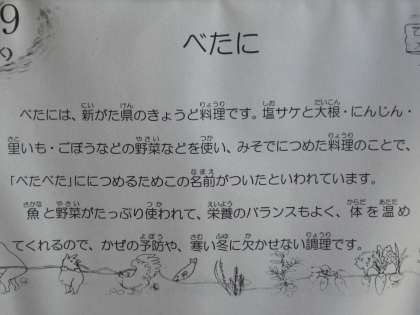 9
べたに
べたには、新がた県のきょうど料理です。塩サケと大根・にんじん・
里いも・ごぼうなどの野菜などを使い、みそでにつめた料理のことで、
「べたべた」ににつめるためこの名前がついたといわれています。
魚と野菜がたっぷり使われて、栄養のバランスもよく、体を温め
てくれるので、かぜの予防や、寒い冬に欠かせない調理です。